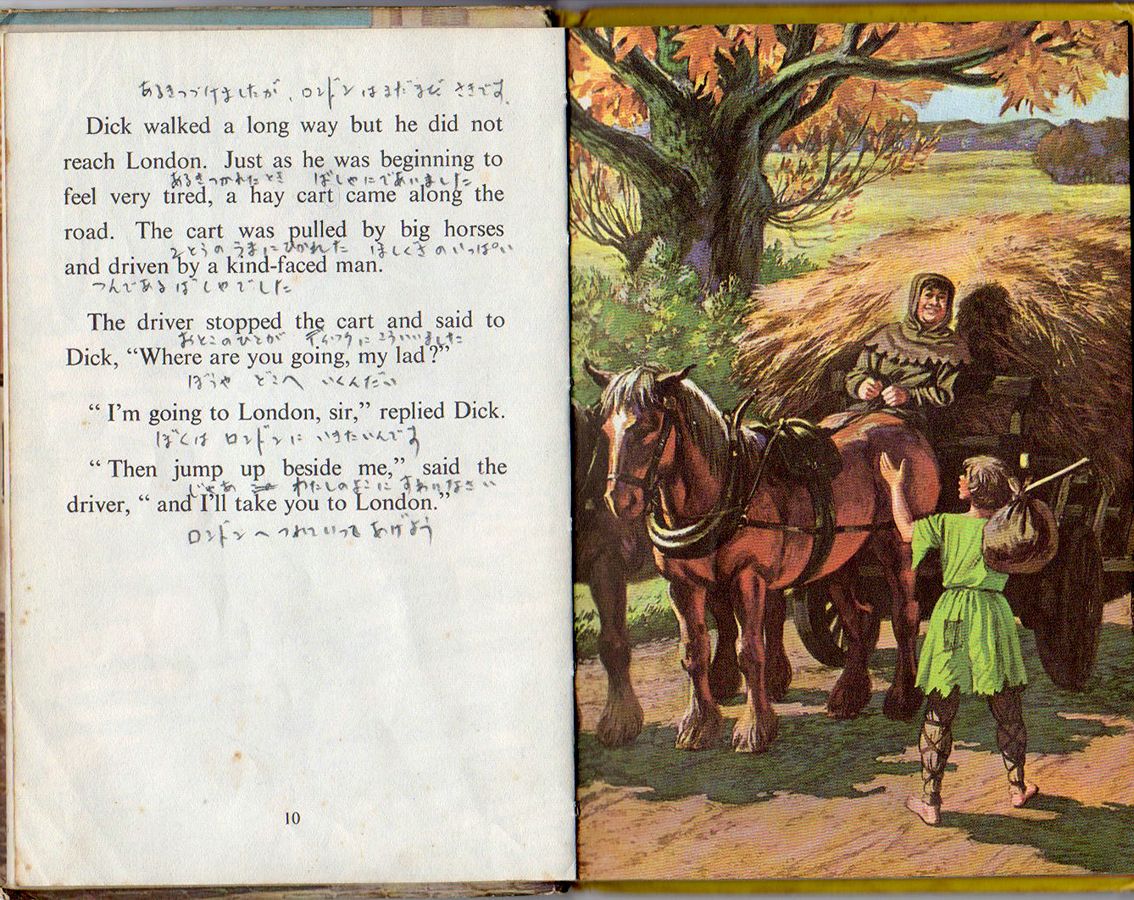 あるきつづけましたが、ロンドンはまだまだ さきです。
Dick walked a long way but he did not
reach London. Just as he was beginning to
あるきつかれたとき ばしゃにであいました
feel very tired, a hay cart came along the
road. The cart was pulled by big horses
2とうのうまにひかれた ほしくさのいっぱい
and driven by a kind-faced man.
つんであるばしゃでした
The driver stopped the cart and said to
おとこのひとが こういいました
Dick, “Where are you going, my lad?”
ぼうや どこへ いくんだい
“ I'm going to London, sir,” replied Dick.
ぼくは ロンドンに いきたいんです
“ Then jump up beside me,” said the
じゃあ わたしのよこに すわりなさい
driver, “ and I'll take you to London.”
ロンドンへ つれていって あげよう
10